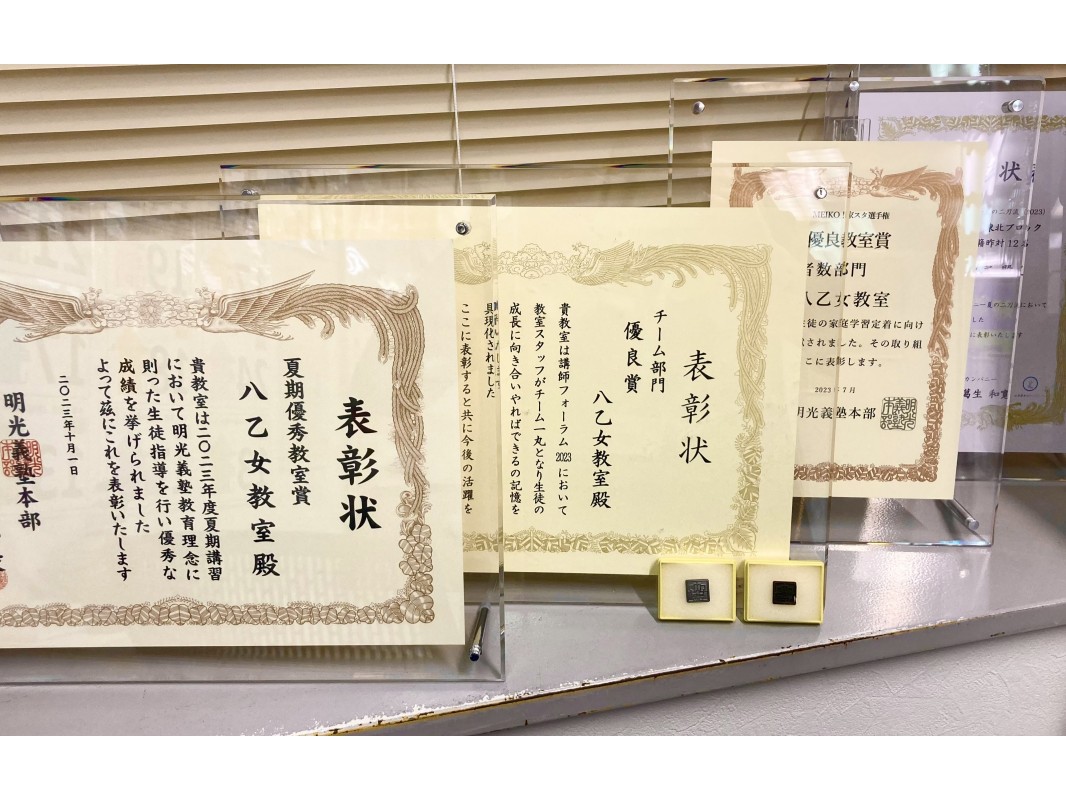 表彰状
夏期優秀教室賞
八乙女教室殿
貴教室は二〇二三年度夏期講習
において明光義塾教育理念に
則った生徒指導を行い優秀な
成績を挙げられました
よって茲にこれを表彰いたします
二〇二三年十月一日
明光義塾本部
表彰状
チーム部門
優良賞
八乙女教室殿
貴教室は講師フォーラム2023において
教室スタッフがチーム一丸となり生徒の
成長に向き合いやればできるの記憶を
具現化されました
ここに表彰すると共に今後の活躍を
MEIKO！家スタ選手権
優良教室賞
者数部門
八乙女教室
生徒の家庭学習定着に向け
されました。その取り組
こに表彰します。
2023年7月
明光義塾本部
状
の二刀流（2023）
東北ブロック
昨対12
夏の二刀流において
した
に表彰いたします
カンパニー